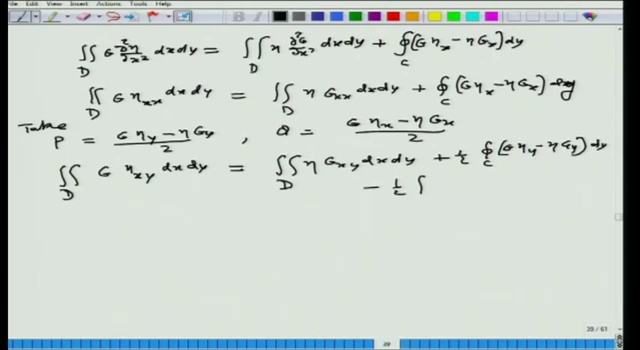 File View Insert Actions Tools Help
∬_D G ∂²η/∂x² dxdy = ∬_D η ∂²G/∂x² dxdy + ∮_C (G η_x − η G_x) dy
∬_D G η_xx dxdy = ∬_D η G_xx dxdy + ∮_C (G η_x − η G_x) dy
Take P = (G η_y − η G_y)/2 , Q = (G η_x − η G_x)/2
∬_D G η_xy dxdy = ∬_D η G_xy dxdy + ½ ∮_C (G η_y − η G_y) dy
− ½ ∫
29 / 61
29